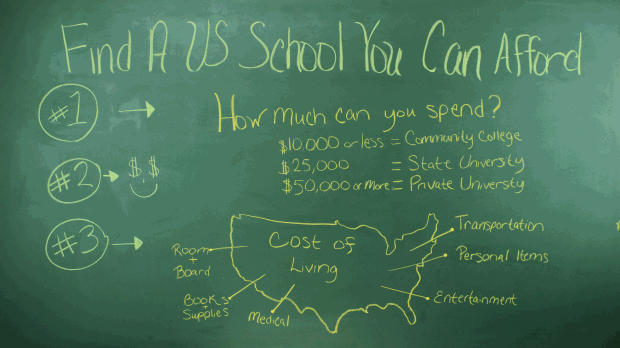 Find A US School You Can Afford
#1
How much can you spend?
$10,000 or less = Community College
$25,000 = State University
$50,000 or more = Private Universty
#2
$ $
#3
Cost of
Living
Room
+
Board
Books
+
Supplies
Medical
Transportation
Personal Items
Entertainment